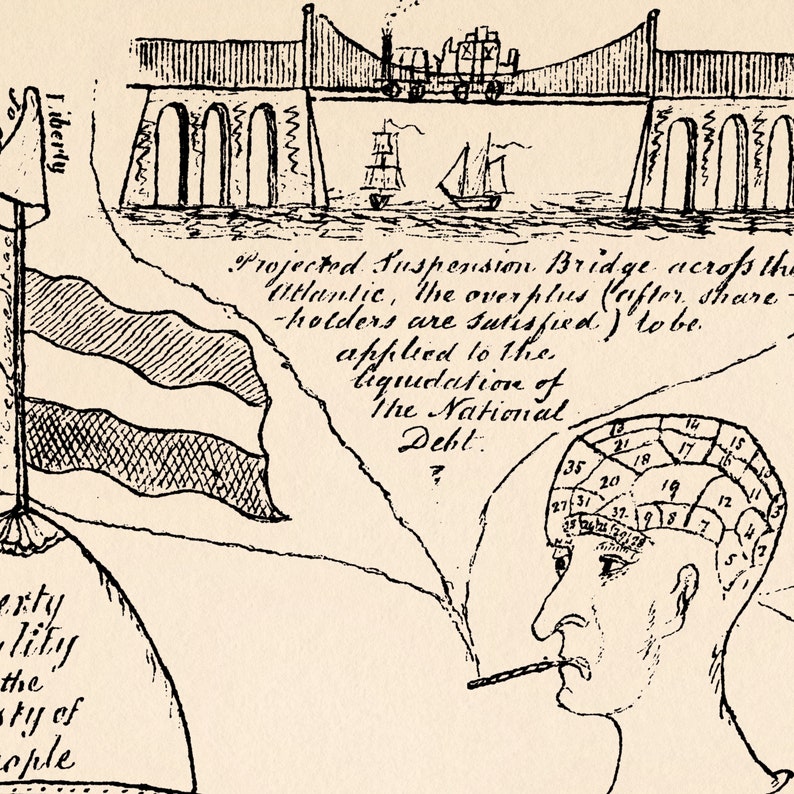 of
Liberty
Projected Suspension Bridge across the
Atlantic, the overplus (after share-
-holders are satisfied) to be
applied to the
liquidation of
the National
Debt.
erty
lity
the
sty of
eople
13 14 15
21 17 16 10
35 18 11
20 19 12 3
27 31 32 9 8 7 4 2
35 24 26 29 28 5 1